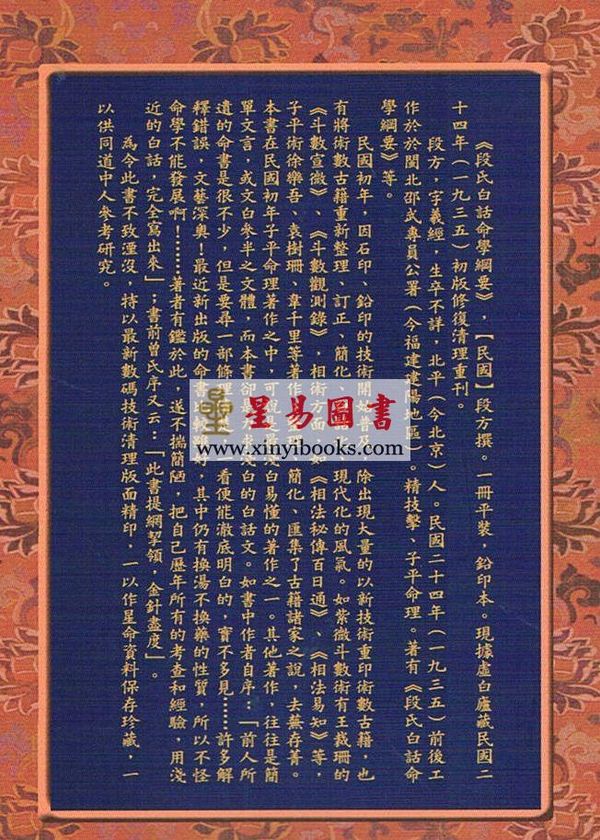 《段氏白話命學綱要》，【民國】段方撰。一冊平裝，鉛印本。現據虛白廬藏民國二
十四年（一九三五）初版修復清理重刊。
段方，字羲經，生卒不詳，北平（今北京）人。民國二十四年（一九三五）前後工
作於於閩北邵武專員公署（今福建建陽地區）。精技擊、子平命理。著有《段氏白話命
學綱要》等。
民國初年，因石印、鉛印的技術開始普及，除出現大量的以新技術重印術數古籍，也
有將術數古籍重新整理、訂正、簡化、現代化的風氣。如紫微斗數術有王裁珊的
《斗數宣微》、《斗數觀測錄》，相術方面，如《相法秘傳百日通》、《相法易知》等，
子平術徐樂吾、袁樹珊、韋千里等著作，簡化、匯集了古籍諸家之說，去蕪存菁。
本書在民國初年子平命理著作之中，可說是最淺白易懂的著作之一。其他著作，往往是簡
單文言，或文白參半之文體，而本書卻淺白的白話文。如書中作者自序：「前人所
遺的命書是很不少，但是要尋一部條理看便能澈底明白的，實不多見……許多解
釋錯誤，文藝深奧！最近新出版的命書比較雖好，其中仍有換湯不換藥的性質，所以不怪
命學不能發展啊！……著者有鑑於此，遂不揣簡陋，把自己歷年所有的考查和經驗，用淺
近的白話，完全寫出來」；書前曾氏序又云：「此書提綱挈領，金針盡度」。
為令此書不致湮沒，特以最新數碼技術清理版面精印，一以作星命資料保存珍藏，一
以供同道中人參考研究。
星易圖書
www.xinyibooks.com